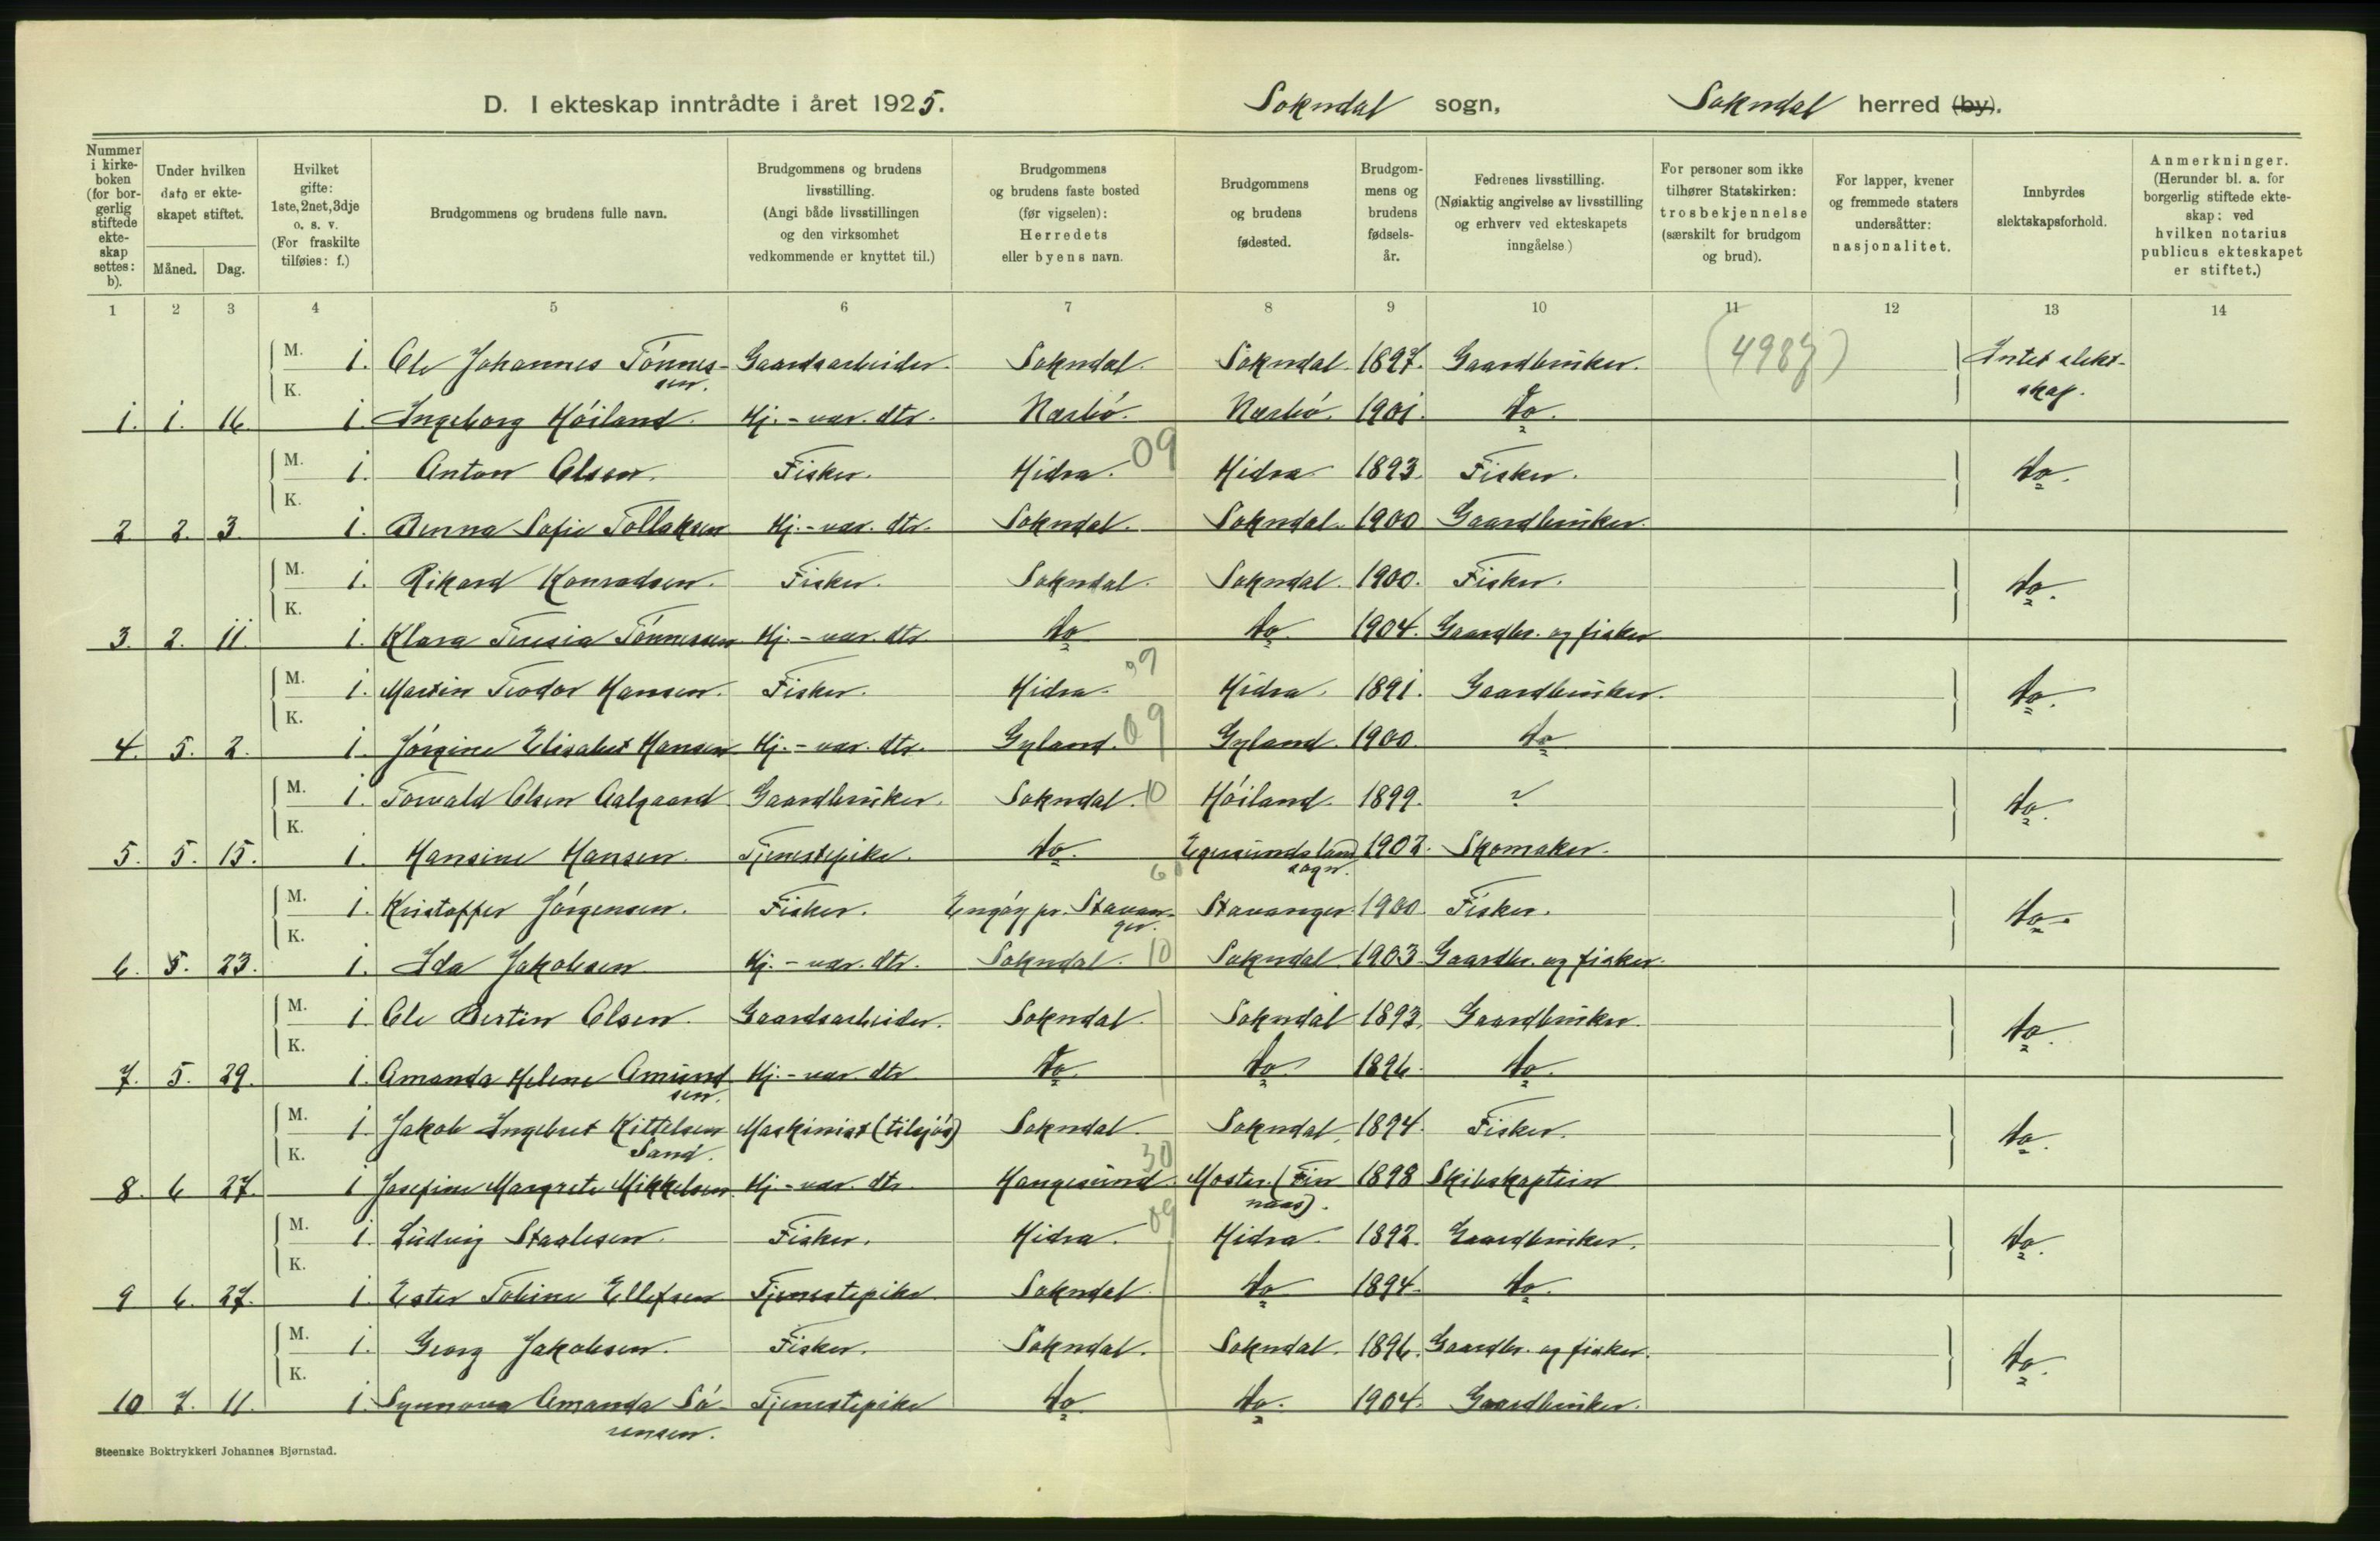 D. I ekteskap inntrådte i året 1925. Sokndal sogn, Sokndal herred (by).
Nummer i kirke-boken (for bor-gerlig stiftede ekte-skap settes: b).
Under hvilken dato er ekte-skapet stiftet.
Måned. Dag.
Hvilket gifte: 1ste, 2net, 3dje o. s. v. (For fraskilte tilføies: f.)
Brudgommens og brudens fulle navn.
Brudgommens og brudens livsstilling. (Angi både livsstillingen og den virksomhet vedkommende er knyttet til.)
Brudgommens og brudens faste bosted (før vigselen): Herredets eller byens navn.
Brudgommens og brudens fødested.
Brudgom-mens og brudens fødsels-år.
Fedrenes livsstilling. (Nøiaktig angivelse av livsstilling og erhverv ved ekteskapets inngåelse.)
For personer som ikke tilhører Statskirken: trosbekjennelse (særskilt for brudgom og brud).
For lapper, kvener og fremmede staters undersåtter: nasjonalitet.
Innbyrdes slektskapsforhold.
Anmerkninger. (Herunder bl. a. for borgerlig stiftede ekte-skap: ved hvilken notarius publicus ekteskapet er stiftet.)
1 2 3 4 5 6 7 8 9 10 11 12 13 14
M. 1. Ole Johannes Tönnes-sen. Gaardsarbeider. Sokndal. Sokndal. 1897. Gaardbruker. (498) Intet slekt-skap.
1. 1. 16. K. 1. Ingeborg Höiland. Hj.-vær. dtr. Nærbö. Nærbö. 1901. do.
M. 1. Anton Olsen. Fisker. Hidra. 09 Hidra 1893. Fisker. do.
2 2. 3. K. 1. Benna Sofie Tollaksen Hj.-vær. dtr. Sokndal. Sokndal. 1900 Gaardbruker.
M. 1. Rikard Konradsen. Fisker. Sokndal. Sokndal. 1900. Fisker. do.
3. 2. 11. K. 1. Klara Teresia Tönnessen Hj.-vær. dtr do do. 1904. Gaardbr. og fisker
M. 1. Martin Teodor Hansen. Fisker. Hidra. 09 Hidra. 1891. Gaardbruker. do.
4. 5. 2. K. 1. Jörgine Elisabet Hansen Hj.-vær. dtr. Gyland. 09 Gyland. 1900. do
M. 1. Torvald Olsen Aalgaard Gaardbruker. Sokndal. 10 Höiland. 1899. ? do.
5. 5. 15. K. 1. Hansine Hansen. Tjenestepike. do. Egersunds land sogn. 1902. Skomaker.
M. 1. Kristoffer Jörgensen. Fisker. Engöy pr. Stavan-ger. Stavanger. 1900. Fisker. do.
6. 5. 23. K. 1. Ida Jakobsen Hj.-vær. dtr. Sokndal. 10 Sokndal. 1903. Gaardbr. og fisker.
M. 1. Ole Bertin Olsen. Gaardsarbeider. Sokndal. Sokndal 1893. Gaardbruker. do.
7. 5. 29. K. 1. Amanda Helene Amund sen. Hj.-vær. dtr do. do. 1896. do.
M. 1. Jakob Ingebret Kittelsen Sand. Maskinist (tilsjös) Sokndal Sokndal. 1894. Fisker. do.
8. 6 27. K. 1 Josefine Margrete Mikkelsen Hj.-vær. dtr. Haugesund. 30 Moster. (Fin naas). 1898 Skibskaptein
M. 1. Ludvig Staalesen. Fisker. Hidra. 09 Hidra. 1892. Gaardbruker. do.
9 6. 27. K. 1. Ester Tobine Ellefsen Tjenestepike. Sokndal. do 1894. do.
M. 1. Georg Jakobsen. Fisker. Sokndal. Sokndal. 1896. Gaardbr. og fisker. do.
10 7. 11. K. 1. Synnova Amanda Sö-rensen. Tjenestepike do do. 1904. Gaardbruker.
Steenske Boktrykkeri Johannes Bjørnstad.